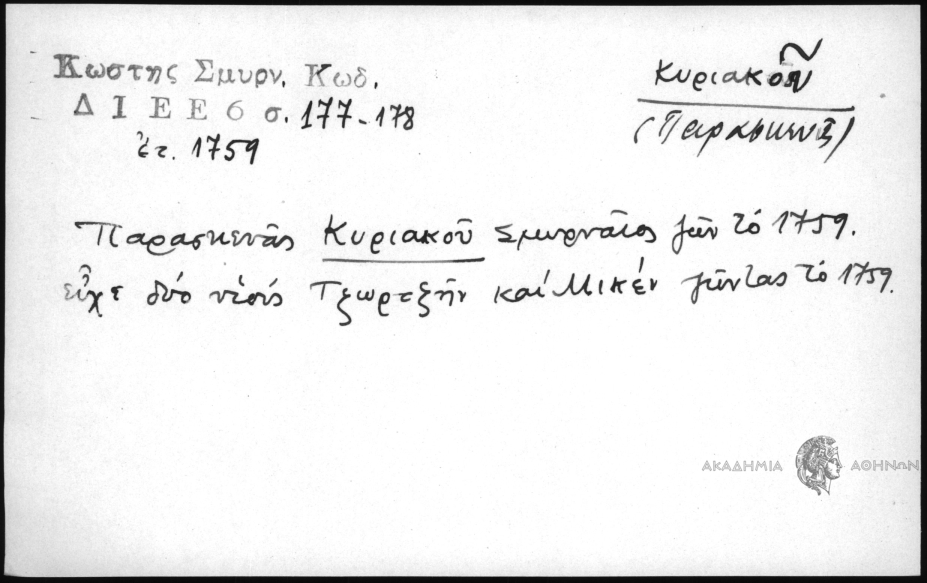 Κωστης Σμυρν. Κωδ.
Δ Ι Ε Ε 6 σ. 177-178
ἐτ. 1759
Κυριακοῦ
(Παρασκευᾶς)
Παρασκευᾶς Κυριακοῦ Σμυρναῖος ζῶν τό 1759.
εἶχε δύο υἱούς Τζωρτζῆν καί Μικέν ζῶντας τό 1759.
ΑΚΑΔΗΜΙΑ ΑΘΗΝΩΝ